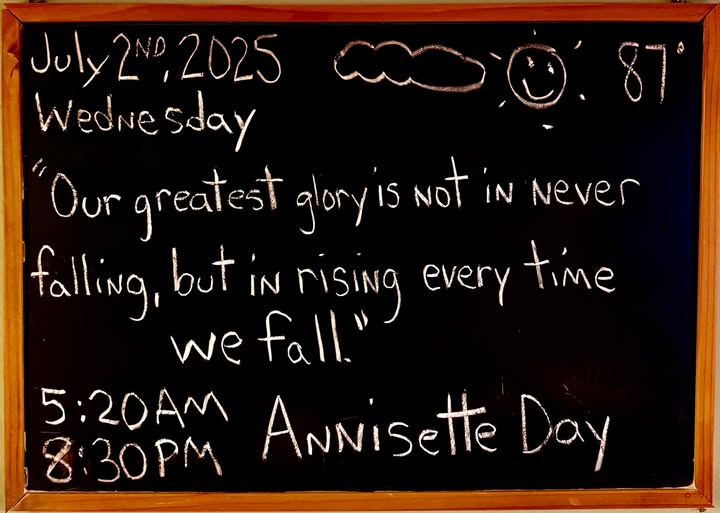 July 2ND, 2025 87°
Wednesday
"Our greatest glory is not in never
falling, but in rising every time
we fall."
5:20AM
8:30PM Annisette Day